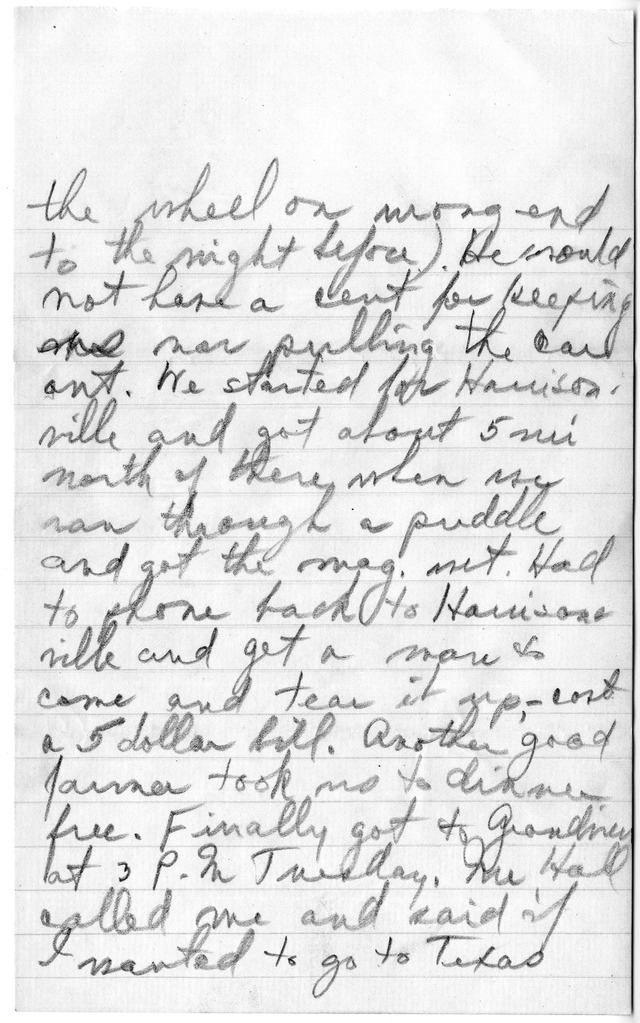 the wheel on wrong end
to the night before). He would
not have a cent for keeping
us nor pulling the car
out. We started for Harrison-
ville and got about 5 mi
north of there when we
ran through a puddle
and got the mag. wet. Had
to phone back to Harrison
ville and get a man to
come and tear it up,-cost
a 5 dollar bill. Another good
farmer took us to dinner
free. Finally got to Grandview
at 3 P.M Tuesday. Mr Hall
called me and said if
I wanted to go to Texas